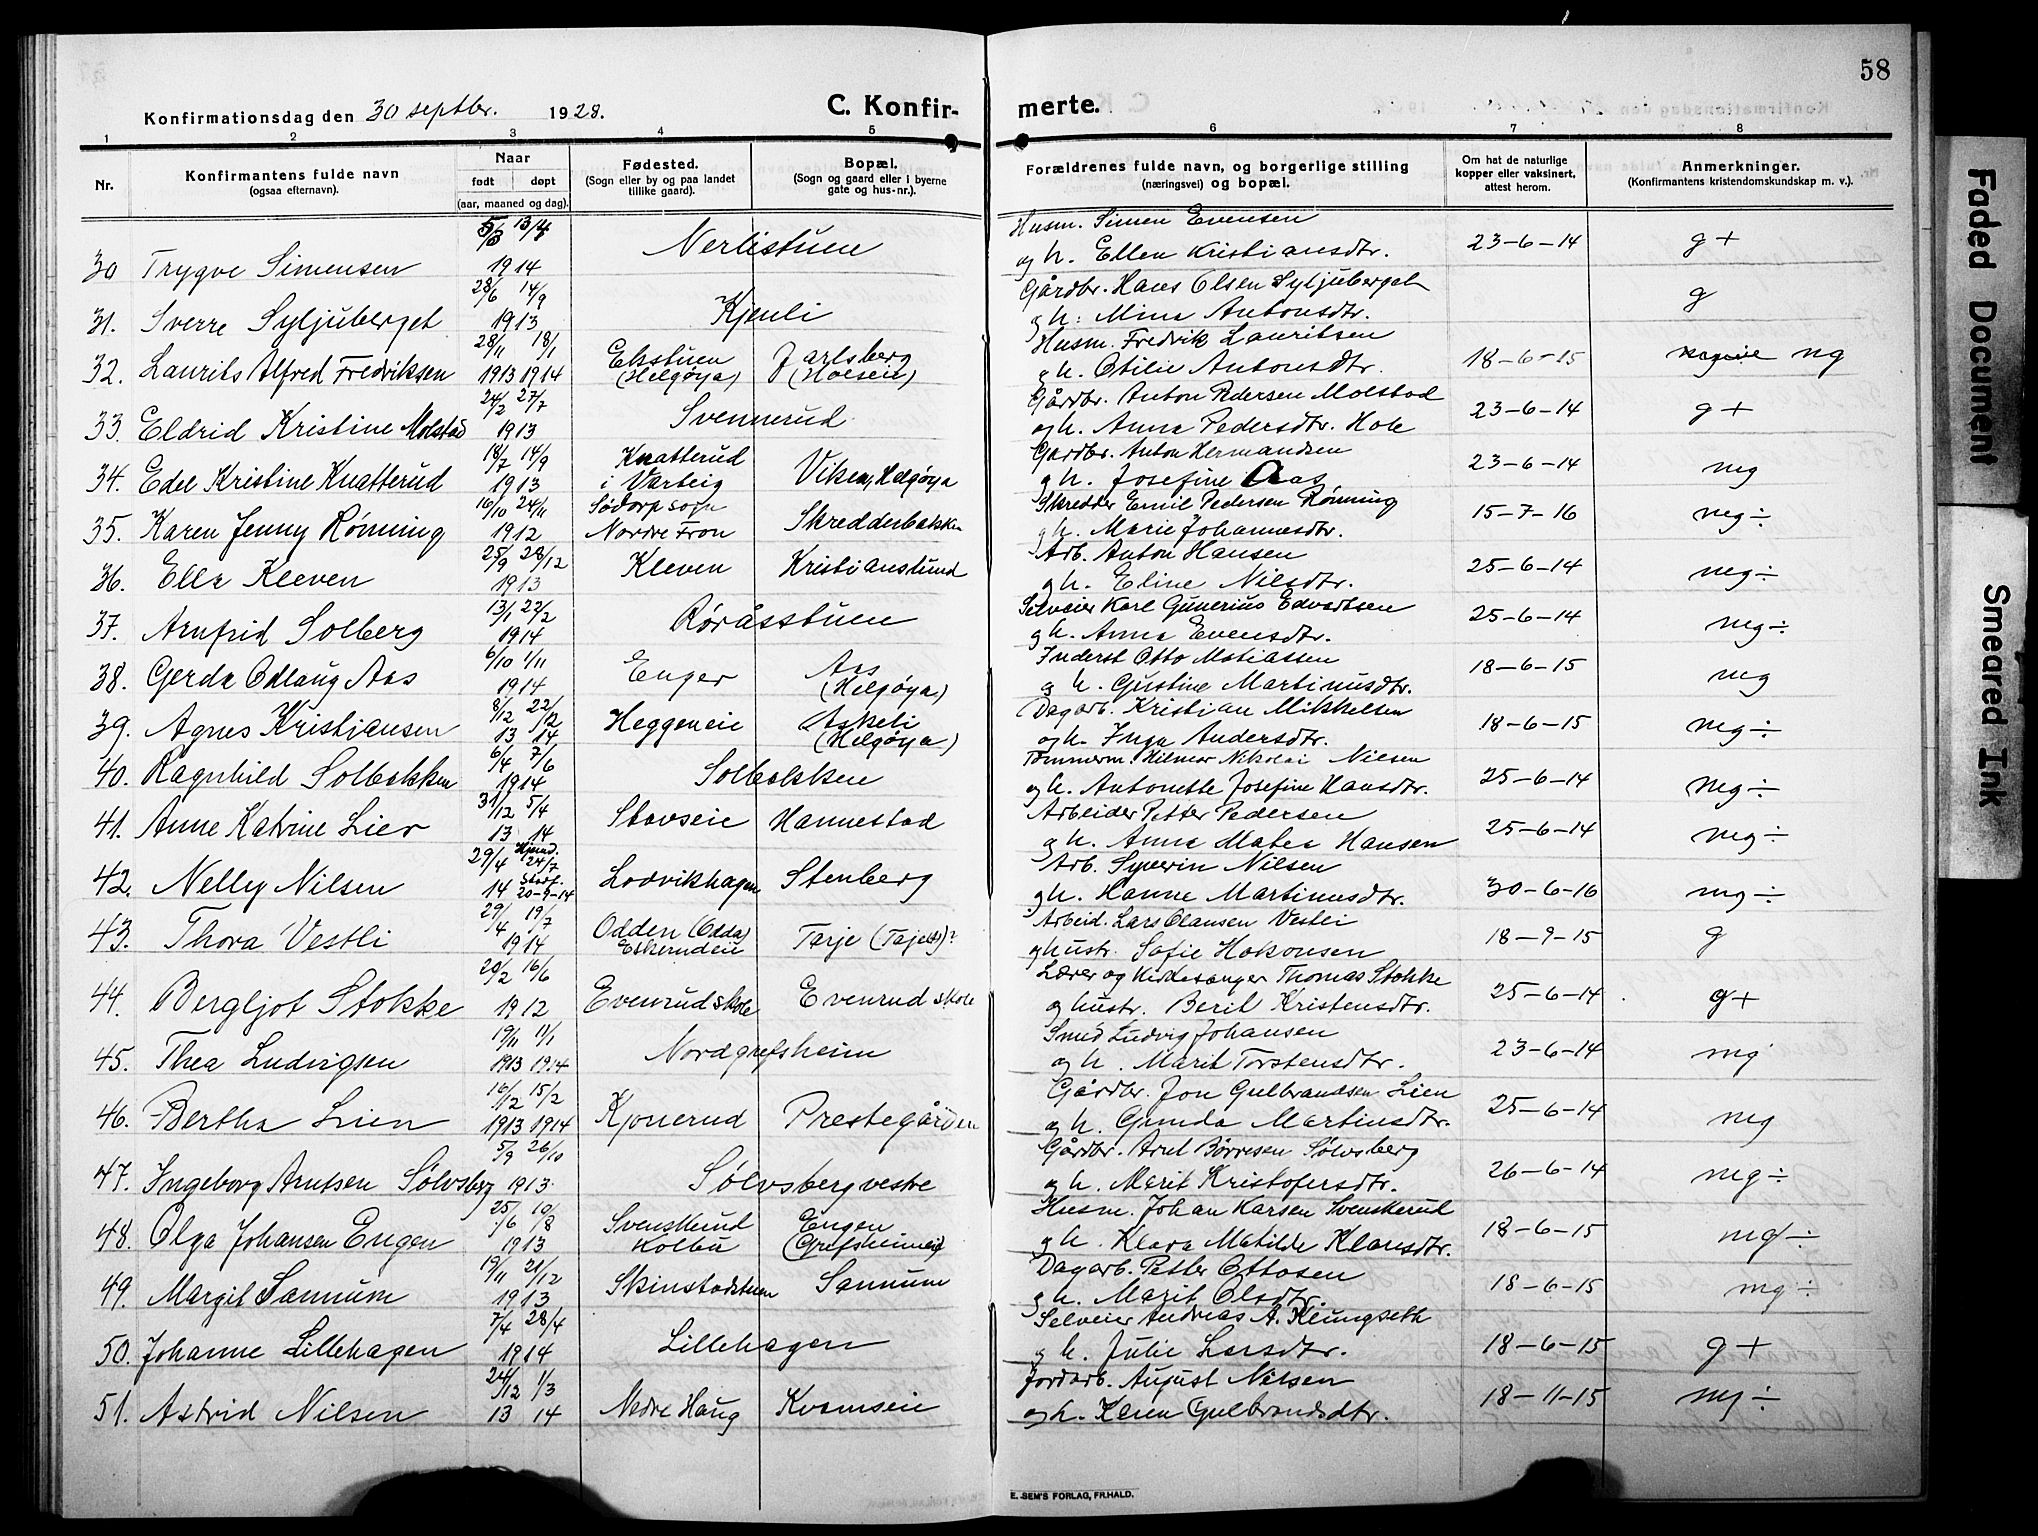 58
Konfirmationsdag den 30 septbr. 1928.
C. Konfir- merte.
1 2 3 4 5 6 7 8
Nr.
Konfirmantens fulde navn
(ogsaa efternavn).
Naar
født døpt
(aar, maaned og dag).
Fødested.
(Sogn eller by og paa landet
tillike gaard).
Bopæl.
(Sogn og gaard eller i byerne
gate og hus-nr.).
Forældrenes fulde navn, og borgerlige stilling
(næringsvei) og bopæl.
Om hat de naturlige
kopper eller vaksinert,
attest herom.
Anmerkninger.
(Konfirmantens kristendomskundskap m. v.).
5/3 13/4 Husm. Simen Evensen
30 Trygve Simensen 1914 Nerlistuen og h. Ellen Kristiansdtr. 23-6-14 g+
28/6 14/9 Gårdbr. Hans Olsen Syljuberget
31. Sverre Syljuberget 1913 Kjenli og h: Mina Antonsdtr. g
28/11 18/1 Ekstuen Jarlsberg Husm. Fredrik Lauritsen
32. Laurits Alfred Fredriksen 1913 1914 (Helgøya) (Hoeseie) og h. Otilie Antonsdtr. 18-6-15 ng
24/2 27/7 Gårdbr. Anton Pedersen Molstad
33. Eldrid Kristine Molstad 1913 Svennerud og h. Anna Pedersdtr. Hole 23-6-14 g+
18/7 14/9 Knatterud Gardbr. Anton Hermandsen
34. Edel Kristine Knatterud 1913 i Varteig Viken, Helgøya og h. Josefine Aas 23-6-14 mg
16/10 24/11 Sødorp sogn Skredder Emil Pedersen Rønning
35. Karen Jenny Rønning 1912 Nordre Fron Skredderbakken og h. Marie Johannesdtr. 15-7-16 mg÷
25/9 28/12 Arb. Anton Hansen
36. Ella Kleven 1913 Kleven Kristianslund og h. Eline Nilsdtr. 25-6-14 mg÷
13/1 22/2 Selveier Karl Gunerius Edvardsen
37. Arnfrid Solberg 1914 Røråsstuen og h. Anna Evensdtr. 25-6-14 mg÷
6/10 1/11 Inderst Otto Matiassen
38. Gerda Odlaug Aas 1914 Enger Aas (Helgøya) og h. Gustine Martinusdtr. 18-6-15 mg
8/12 22/2 Dagarb. Kristian Mikkelsen
39. Agnes Kristiansen 13 14 Heggeneie Askeli (Helgøya) og h. Inga Andersdtr. 18-6-15 mg÷
6/4 7/6 Tømmerm. Hilmar Nikolai Nilsen
40. Ragnhild Solbakken 1914 Solbakken og h. Antonette Josefine Hansdtr. 25-6-14 mg÷
31/12 5/4 Arbeider Petter Pedersen
41. Anne Katrine Lier 13 14 Stavseie Hannestad og h. Anna Matea Hansen 25-6-14 mg÷
29/4 Hjemd. 24/7 Arb. Syverin Nilsen
42. Nelly Nilsen 14 Stadf. 20-9-14 Lodvikhagen Stenberg og h. Hanne Martinusdtr. 30-6-16 mg÷
29/4 19/7 Odden (Odda) Arbeid. Lars Olausen Vestli
43. Thora Vestli 1914 Eskerudeie Tarje (Tajets)? og hustr. Sofie Hakonsen 18-9-15 g
20/2 16/6 Lærer og Kirkesanger Thomas Stokke
44. Bergljot Stokke 1912 Evenrud skole Evenrud skole og hustr. Berit Kristensdtr. 25-6-14 g+
19/11 11/1 Smed Ludvig Johansen
45. Thea Ludvigsen 1913 1914 Nordgrefsheim og h. Marit Torstensdtr. 23-6-14 mg
16/12 15/2 Gårdbr. Jon Gulbrandsen Lien
46. Bertha Lien 1913 1914 Kjonerud Prestegården og h. Gunda Martinsdtr. 25-6-14 mg
5/9 26/10 Gårdbr. Arnt Børresen Sølvsberg
47. Ingeborg Arntsen Sølvsberg 1913 Sølvsberg vestre og h. Marit Kristofersdtr. 26-6-14 mg÷
25/6 10/8 Svenskerud Engen Husm. Johan Karsen Svenskerud
48. Olga Johansen Engen 1913 Kolbu (Grefsheimeie) og h. Klara Matilde Klausdtr. 18-6-15 mg÷
19/11 21/12 Dagarb. Petter Ottosen
49. Margit Sannum 1913 Skinstadstuen Sannum og h. Marit Olsdtr. 18-6-15 mg÷
7/4 28/4 Selveier Andreas A. Klungseth
50. Johanne Lillehagen 1914 Lillehagen og h. Julie Larsdtr. 18-6-15 g+
24/12 1/3 Jordarb. August Nilsen
51. Astrid Nilsen 13 14 Nedre Haug Kvamseie og h. Karen Gulbrandsdtr. 18-11-15 mg÷
E. SEM'S FORLAG, FR.HALD.
Faded Document
Smeared Ink